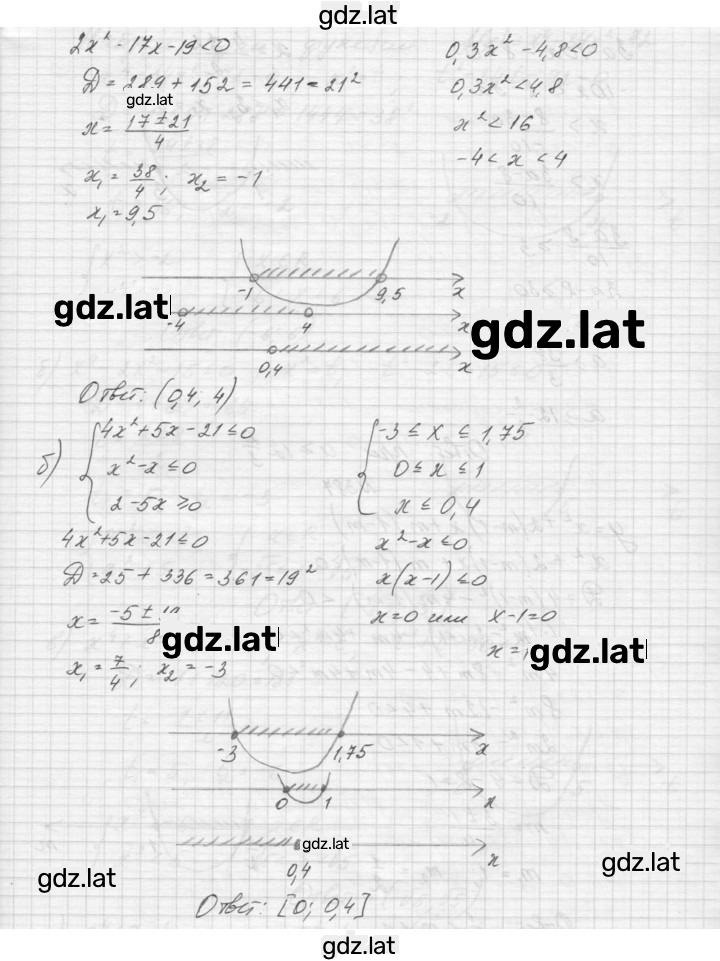 gdz.lat
2x² - 17x - 19 < 0
D = 289 + 152 = 441 = 21²
gdz.lat
x = (17 ± 21)/4
x₁ = 38/4; x₂ = -1
x₁ = 9,5
0,3x² - 4,8 < 0
0,3x² < 4,8
x² < 16
-4 < x < 4
-1 9,5 x
gdz.lat
-4 4 x
gdz.lat
0,4 x
Ответ: (0,4; 4)
б) { 4x² + 5x - 21 ≤ 0
x² - x ≤ 0
2 - 5x ≥ 0
{ -3 ≤ x ≤ 1,75
0 ≤ x ≤ 1
x ≤ 0,4
4x² + 5x - 21 ≤ 0
D = 25 + 336 = 361 = 19²
x = (-5 ±)/8
gdz.lat
x₁ = 7/4; x₂ = -3
x² - x ≤ 0
x(x - 1) ≤ 0
x = 0 или x - 1 = 0
x =
gdz.lat
-3 1,75 x
0 1 x
gdz.lat
0,4 x
gdz.lat
gdz.lat
Ответ: [0; 0,4]
gdz.lat